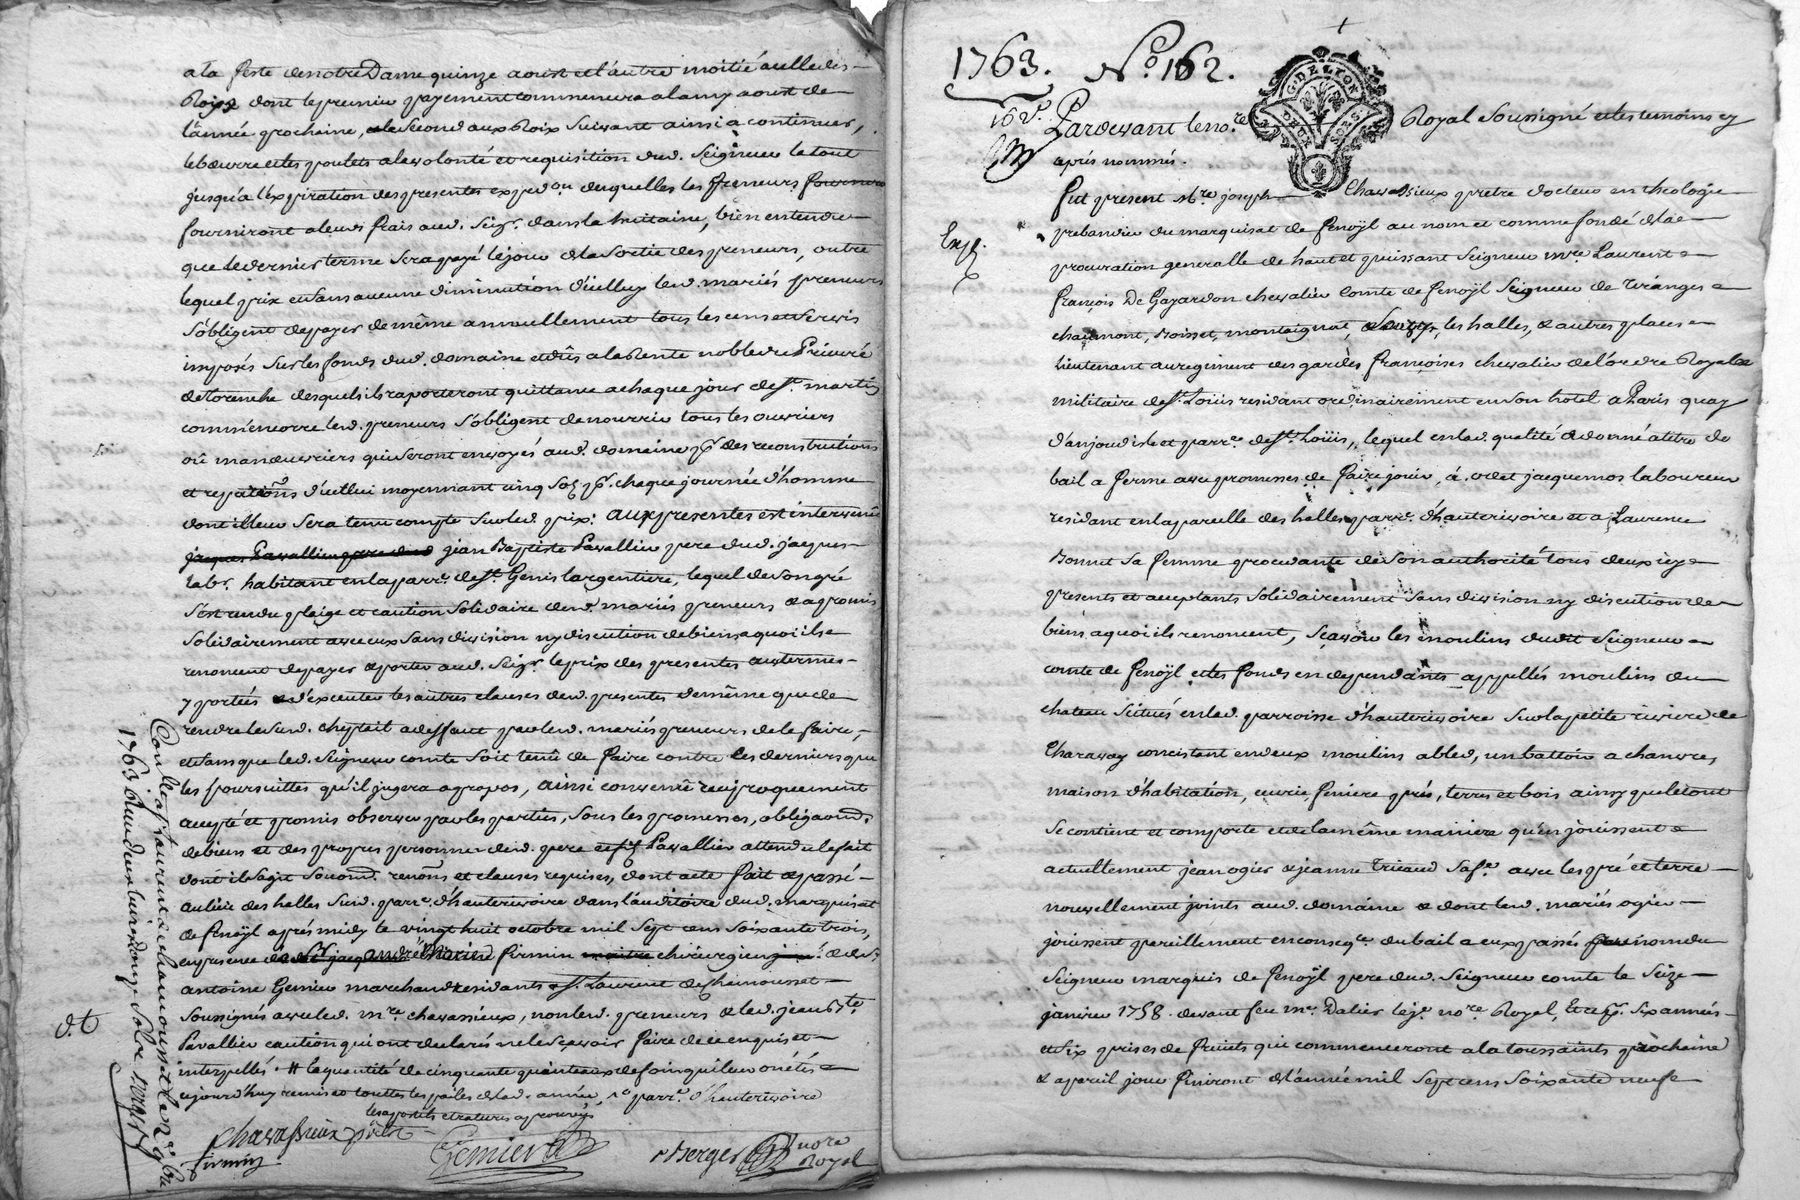 a la feste de notre Dame quinze aoust et l'autre moitié a celle des
Roixs dont le premier payement commencera a la my aoust de
l'année prochaine, le second aux Roix suivant ainsi a continuer,
le beurre et les poulets a la volonté et requisition dud. Seigneur le tout
jusqu'a l'expiration des presentes expedon desquelles les preneurs
fourniront a leurs frais aud. Seigr. dans la huitaine, bien entendu
que le dernier terme sera payé le jour de la sortie des preneurs, outre
lequel prix et sans aucune diminution d'icelluy led. mariés preneurs
s'obligent de payer de même annuellement tous les cens et servis
imposés sur les fonds dud. domaine et dûs a la Rente noble du Prieuré
de Torenche desquels ils raporteront quittance a chaque jour de st. martin
comm'encorre led. preneurs s'obligent de nourrir tous les ouvriers
où manœuvriers qui seront envoyés aud. domaine pr. des reconstructions
et repations d'icellui moyennant cinq sols pr. chaque journée d'homme
dont il leur sera tenu compte sur led. prix: aux presentes est intervenu
jean Baptiste Pavallier pere dud. jacques
labr. habitant en la parr. de st. Genis l'argentiere, lequel de son gré
s'est rendu pleige et caution solidaire desd. mariés preneurs & a promis
solidairement avec eux sans division ny discution de biens a quoi ils
renoncent de payer & porter aud. Seigr. le prix des presentes aux termes
y portés & d'executer les autres clauses desd. presentes de même que de
rendre le susd. cheptail a deffaut par led. mariés preneurs de le faire,
et sans que led. Seigneur comte soit tenû de faire contre les derniers que
les poursuittes qu'il jugera a propos, ainsi convenû reciproquement
accepté et promis observer par les parties, sous les promesses, obligaons
de biens et des propres personnes desd. pere et fils Pavallier attendu le fait
dont il s'agit soumd. renons et clauses requises, dont acte fait & passé
au lieu des halles susd. parr. d'hauterivoire dans l'auditoire dud. marquisat
de fenoÿl après midy le vingt huit octobre mil sept cens soixante trois,
en presence de firmin chirurgien & de sr.
antoine Genieu marchand residants a st. Laurent de chamousset
soussignés avec led. mre. chavassieux, non led. preneurs & led. jean Bte.
Pavallier caution qui ont declarés ne le sçavoir faire de ce enquis et
interpellés # la quantité de cinquante quintaux de foin qui leur onétés
ajourd'huy remis et touttes les pailes de lad. année, parr. d'hauterivoire
les apostils et ratures approuvés
Chavassieux ptre
firmin
Genieu
Berger nore Royal
d.t
Controllé a st Laurent de chamousset le 9bre
1763. Reçu
1763. No. 162.
162.
Pardevant le nore. Royal soussigné et les temoins cy
après nommés.
G. DE LYON
DEUX SOLS
Exp.
fut present Mre. joseph Chavassieux pretre docteur en theologie
prebandier du marquisat de fenoÿl au nom et comme fondé de la
procuration generalle de haut et puissant Seigneur mre. Laurent
françois De Gayardon chevalier Comte de fenoÿl Seigneur de Tiranges
chaumont, Boisset, montaignat, les halles, & autres places
Lieutenant au regiment des gardes françoises chevalier de l'ordre Royal &
militaire de st. Loüis residant ordinairement en son hotel a Paris quay
d'anjou isle et parre. de st. Loüis, lequel en lad. qualité a donné a titre de
bail a ferme avec promesses de faire jouir, à. odet jacquemos laboureur
residant en la parcelle des halles parre. d'hauterivoire et a Laurence
Bonnet sa femme procedante de son authorité tous deux icy
presents et acceptants solidairement sans division ny discution de
biens a quoi ils renoncent, sçavoir les moulins dudit Seigneur
comte de fenoÿl et les fonds en dependants appellés moulins du
chateau scitués en lad. parroisse d'hauterivoire sur la petite riviere de
Charavay concistant en deux moulins a bled, un battoir a chanvre,
maison d'habitation, ecurie, feniere, prés, terres et bois ainsy que le tout
se contient et comporte et de la même maniere qu'en jouissent
actuellement jean ogier & jeanne Tricaud sa fe. avec les pré et terre
nouvellement joints aud. domaine & dont led. mariés ogier
joüissent pareillement en conseqce. du bail a eux passés par
Seigneur marquis de fenoÿl pere dud. Seigneur comte le seize
janvier 1758. devant feu me. Dalier leje. nore. Royal, Et ce pr. six années
et six prises de fruits qui commenceront a la toussaints prochaine
& a pareil jour finiront de l'année mil sept cens soixante neuf